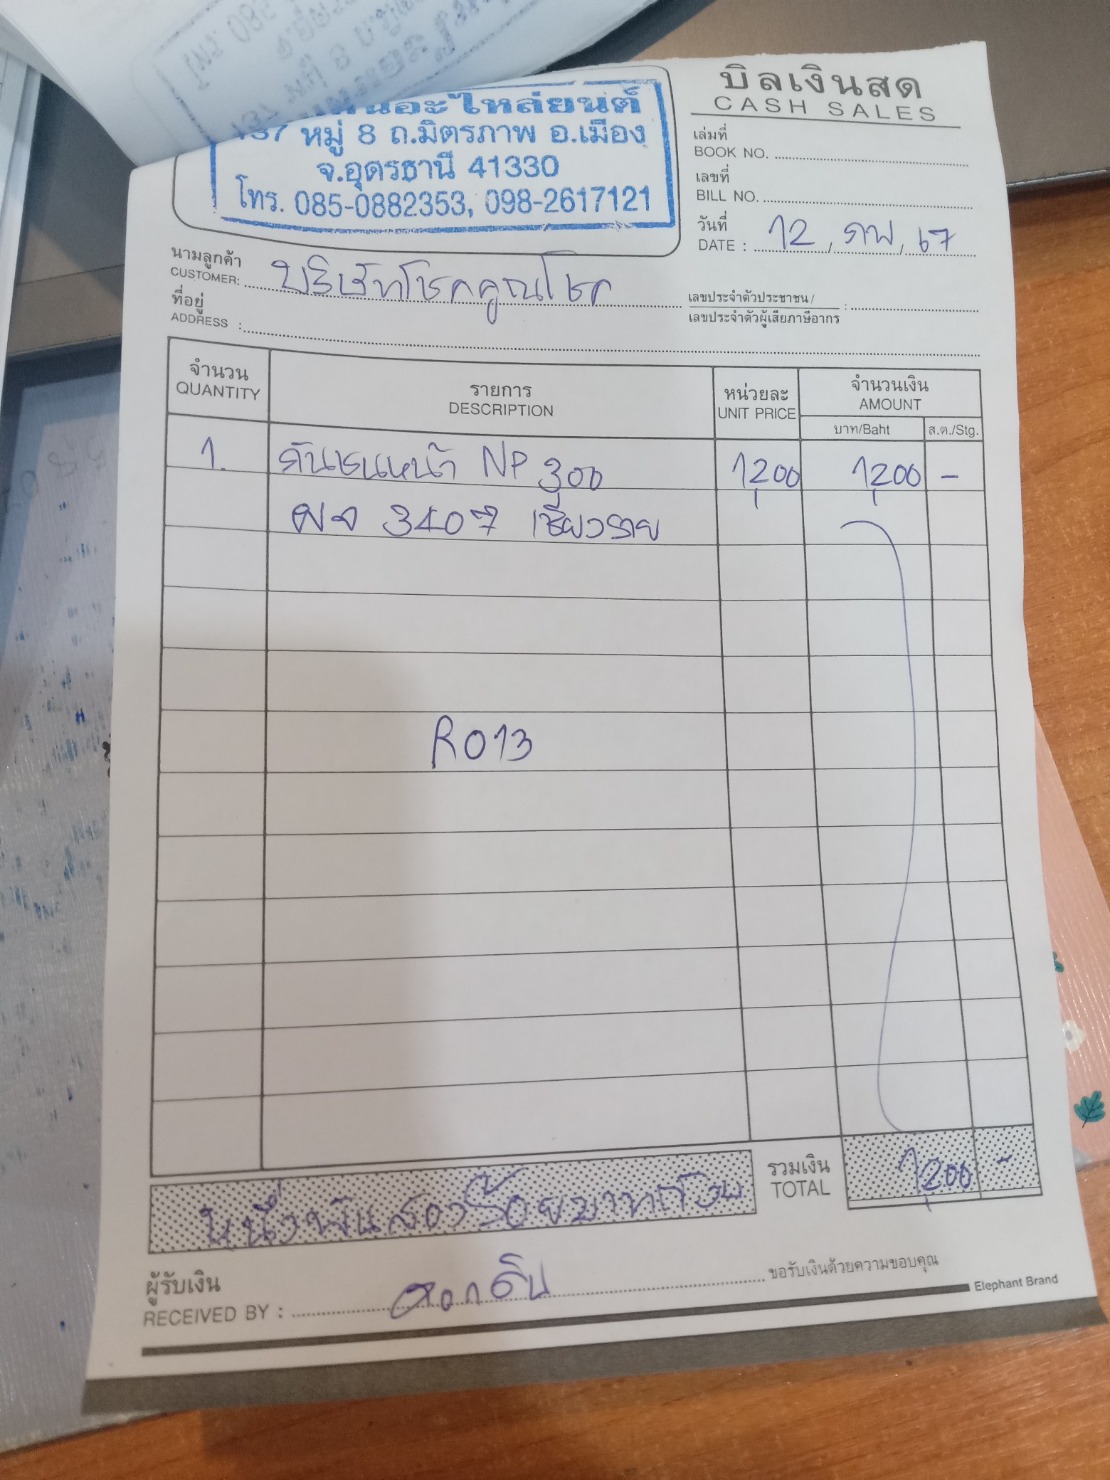 บิลเงินสด
CASH SALES
ไหล่ยนต์
หมู่ 8 ถ.มิตรภาพ อ.เมือง
จ.อุดรธานี 41330
โทร. 085-0882353, 098-2617121
เล่มที่
BOOK NO.
เลขที่
BILL NO.
วันที่
DATE : 12, กพ, 67
นามลูกค้า
CUSTOMER: บริษัทโชคคูณโชค
ที่อยู่
ADDRESS :
เลขประจำตัวประชาชน / :
เลขประจำตัวผู้เสียภาษีอากร
จำนวน รายการ หน่วยละ จำนวนเงิน
QUANTITY DESCRIPTION UNIT PRICE AMOUNT
บาท/Baht ส.ต./Stg.
1. กันชนหน้า NP 300 1,200 1,200 -
ผจ 3407 เชียงราย
R013
รวมเงิน
TOTAL 1,200 -
หนึ่งพันสองร้อยบาทถ้วน
ผู้รับเงิน
RECEIVED BY : ขอรับเงินด้วยความขอบคุณ
Elephant Brand